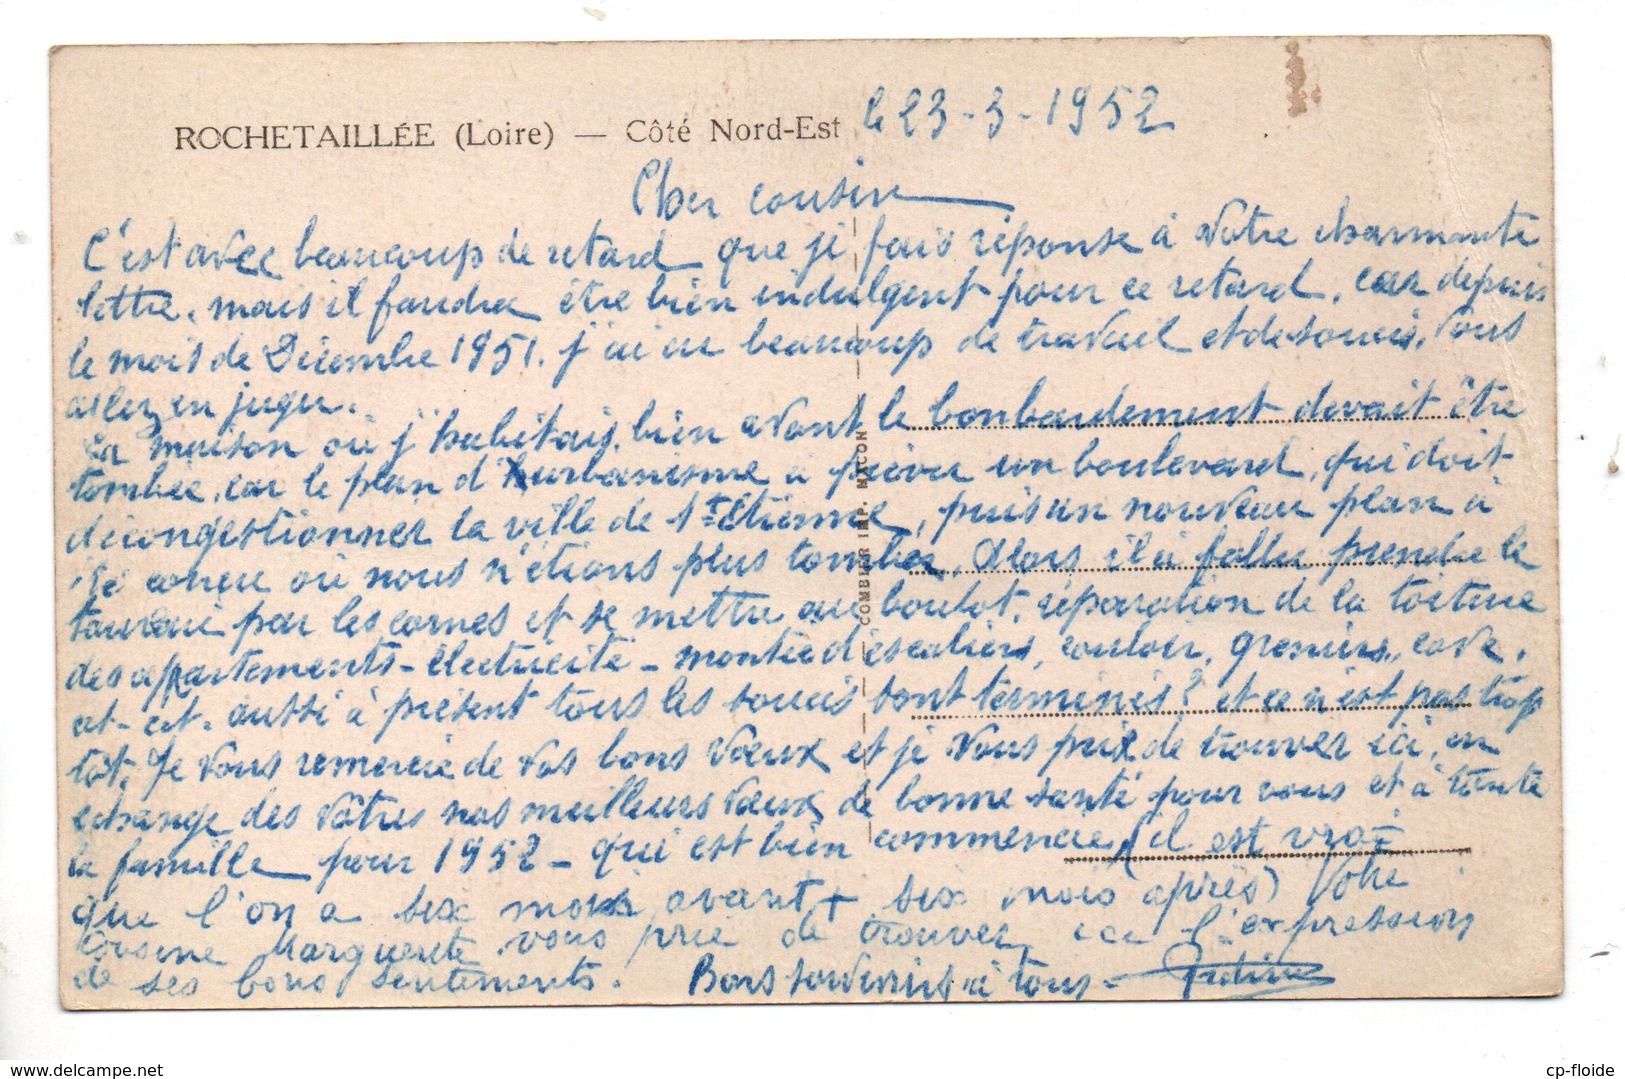 le 23-3-1952
ROCHETAILLÉE (Loire) — Côté Nord-Est
Cher cousin
C'est avec beaucoup de retard que je fais réponse à votre charmante
lettre, mais il faudra être bien indulgent pour ce retard, car depuis
le mois de Décembre 1951. j'ai eu beaucoup de travail et de soucis. Vous
allez en juger.
La maison où j'habitais, bien avant le bonbardement devait être
tombée, car le plan d'urbanisme a prévu un boulevard, qui doit
décongestionner la ville de St Etienne, puis un nouveau plan à
été conçu où nous n'étions plus tomber. Alors il à fallu prendre le
taureau par les cornes et se mettre au boulot, réparation de la toiture
des appartements - électricité - montée d'escaliers, couloir, greniers, cave.
et-cet. aussi à présent tous les soucis sont terminés? et ce n'est pas trop
tôt. Je vous remercie de vos bons vœux et je vous prie de trouver ici, en
echange des vôtres nos meilleurs vœux de bonne santé pour vous et à toute
la famille pour 1952 - qui est bien commencée, (il est vrai
que l'on a six mois avant + six mois après) Votre
Cousine Marguerite vous prie de trouver ici l'expressions
de ses bons sentements. Bons souvenirs à tous -
COMBIER IMP. MACON
www.delcampe.net
cp-floide